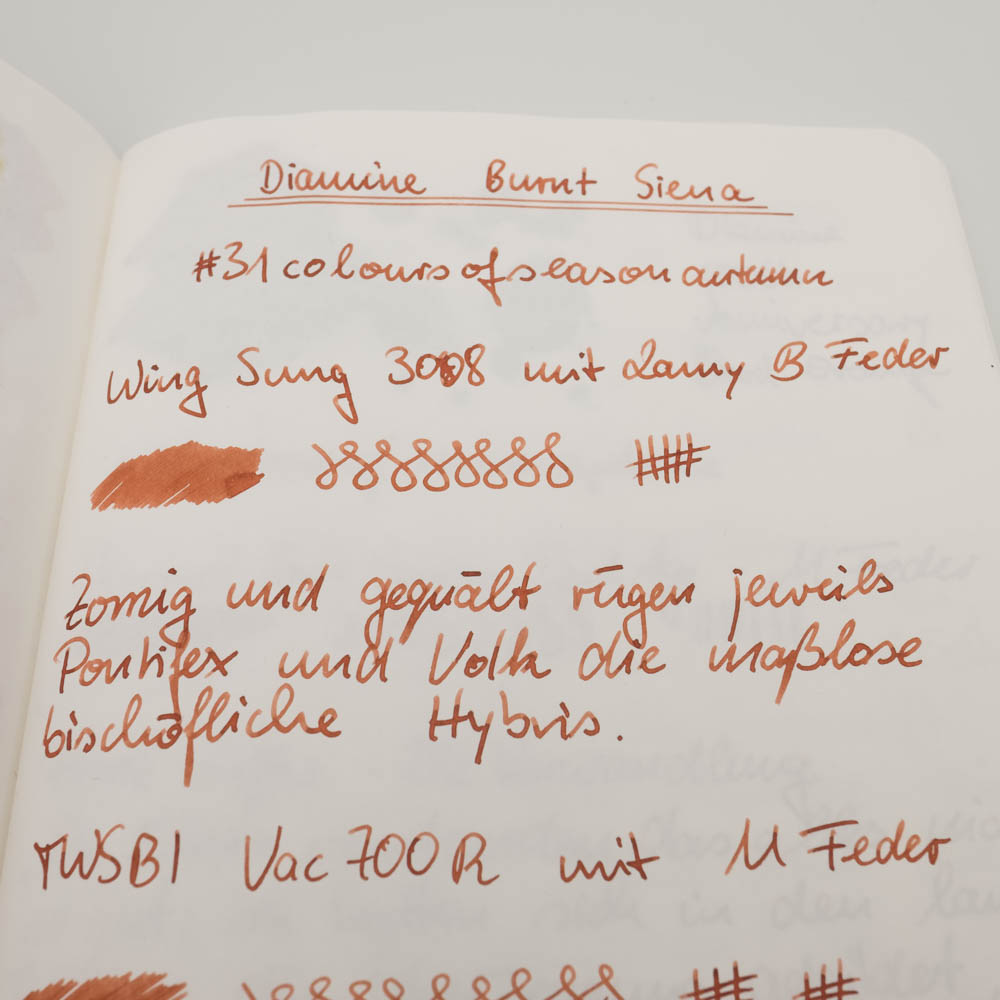 Diamine Burnt Siena
#31coloursofseasonautumn
Wing Sung 3008 mit Lamy B Feder
Zornig und gequält rügen jeweils
Pontifex und Volk die maßlose
bischöfliche Hybris.
TWSBI Vac 700R mit M Feder